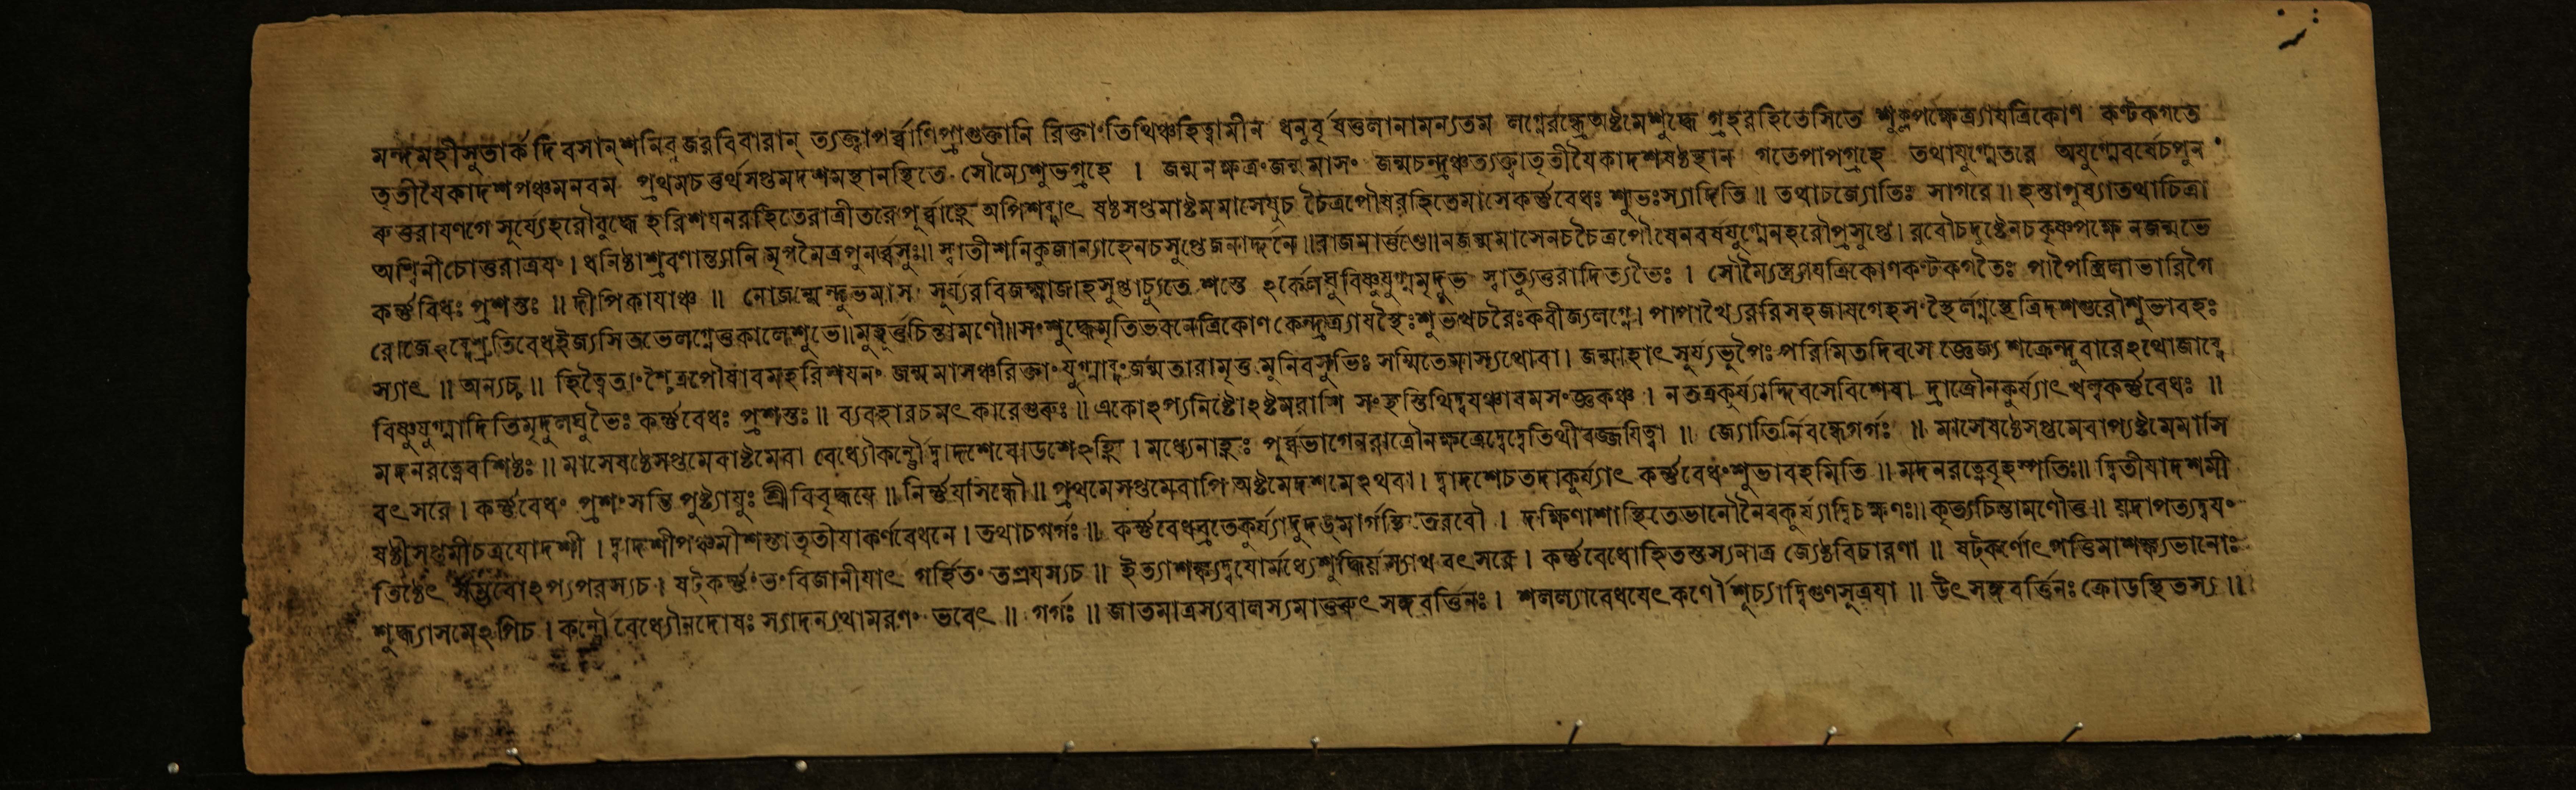 মন্দমহীসুতার্কদিবসান্শনিবুজরবিবারান্ ত্যক্ত্বাপর্ব্বাণিপ্রাগুক্তানি রিক্তাংতিথিঞ্চহিত্বামীন ধনুবৃষতুলানামন্যতম লগ্নেরন্ধ্রেঅষ্টমেশুদ্ধে গ্রহরহিতেসিতে শুক্লপক্ষেত্র্যাযত্রিকোণ কণ্টকগতে
তৃতীযৈকাদশপঞ্চমনবম প্রথমচতুর্থসপ্তমদশমস্থানস্থিতে সৌম্যেশুভগ্রহে । জন্মনক্ষত্রংজন্মমাসং জন্মচন্দ্রঞ্চত্যক্ত্বাতৃতীযৈকাদশষষ্ঠস্থান গতেপাপগ্রহে তথাযুগ্মেতরে অযুগ্মেবর্ষেচপুন
রুত্তরাযণগে সূর্য্যেহরৌবুদ্ধে হরিশযনরহিতেরাত্রীতরেপূর্ব্বাহ্ণে অপিশব্দাৎ ষষ্ঠসপ্তমাষ্টমমাসেষুচ চৈত্রপৌষরহিতেমাসেকর্ণবেধঃ শুভঃস্যাদিতি ॥ তথাচজ্যোতিঃ সাগরে ॥ হস্তাপুষ্যাতথাচিত্রা
অশ্বিনীচোত্তরাত্রযং । ধনিষ্ঠাশ্রবণান্ত্যানি মৃগমৈত্রপুনর্ব্বসুঃ॥ স্বাতীশনিকুজান্যাহেনচসুপ্তেজনার্দ্দনে ॥রাজমার্ত্তণ্ডে॥নজন্মমাসেনচচৈত্রপৌষেনবর্ষযুগ্মেনহরৌপ্রসুপ্তে। রবৌচদুষ্টেনচকৃষ্ণপক্ষে নজন্মভে
কর্ণবিধঃ প্রশস্তঃ ॥ দীপিকাযাঞ্চ ॥ নোজন্মেন্দুভমাস সূর্য্যরবিজক্ষ্মাজাহসুপ্তাচ্যুতে শস্তে ঽর্কেলঘুবিষ্ণুযুগ্মমৃদুভ স্বাত্যুত্তরাদিত্যভৈঃ । সৌম্যৈস্ত্র্যাযত্রিকোণকণ্টকগতৈঃ পাপৈস্ত্রিলাভারিগৈ
রোজেঽব্দেশ্রুতিবেধইজ্যসিতভেলগ্নেতুকালেশুভে॥মুহূর্ত্তচিন্তামণৌ॥সংশুদ্ধেমৃতিভবনেত্রিকোণ কেন্দ্রত্র্যাযস্থৈঃশুভখচরৈঃকবীজ্যলগ্নে। পাপাখ্যৈররিসহজাযগেহসংস্থৈর্লগ্নস্থেত্রিদশগুরৌশুভাবহঃ
স্যাৎ ॥ অন্যচ্চ ॥ হিত্বৈতাংশ্চৈত্রপৌষাবমহরিশযনং জন্মমাসঞ্চরিক্তাং যুগ্মাব্দংজন্মতারামৃতু মুনিবসুভিঃ সম্মিতেমাস্যথোবা । জন্মাহাৎ সূর্য্যভূপৈঃ পরিমিতদিবসে জ্ঞেজ্য শক্রেন্দুবারেঽথোজাব্দে
বিষ্ণুযুগ্মাদিতিমৃদুলঘুভৈঃ কর্ণবেধঃ প্রশস্তঃ ॥ ব্যবহারচমৎকারেগুরুঃ ॥ একোঽপ্যনিষ্টোঽষ্টমরাশি সংস্থস্তিথিদ্বযঞ্চাবমসংজ্ঞকঞ্চ । নতত্রকুর্য্যাদ্দিবসেবিশেষা দ্রাত্রৌনকুর্য্যাৎ খলুকর্ণবেধঃ ॥
মদনরত্নেবশিষ্ঠঃ ॥ মাসেষষ্ঠেসপ্তমেবাষ্টমেবা বেধ্যৌকর্ণৌদ্বাদশেষোডশেঽহ্নি । মধ্যেনাহ্নঃ পূর্ব্বভাগেনরাত্রৌনক্ষত্রেদ্বেদ্বেতিথীবর্জ্জযিত্বা ॥ জ্যোতির্নিবন্ধেগর্গঃ ॥ মাসেষষ্ঠেসপ্তমেবাপ্যষ্টমেমাসি
বৎসরে । কর্ণবেধং প্রশংসন্তি পুষ্ট্যাযুঃ শ্রীবিবৃদ্ধযে ॥ নির্ণযসিন্ধৌ ॥ প্রথমেসপ্তমেবাপি অষ্টমেদশমেঽথবা । দ্বাদশেচতদাকুর্য্যাৎ কর্ণবেধংশুভাবহমিতি ॥ মদনরত্নেবৃহস্পতিঃ॥ দ্বিতীযাদশমী
ষষ্ঠীসপ্তমীচত্রযোদশী । দ্বাদশীপঞ্চমীশস্তাতৃতীযাকর্ণবেধনে । তথাচগর্গঃ ॥ কর্ণবেধব্রতেকুর্য্যাদুদঙ্মার্গস্থিতেরবৌ । দক্ষিণাশাস্থিতেভানৌনৈবকুর্য্যাদ্বিচক্ষণঃ॥ কৃত্যচিন্তামণৌতু॥ যদাপত্যদ্বযং
তিষ্ঠেৎ ঽপ্যপরস্যচ । ষট্কর্ণং তংবিজানীযাৎ গর্হিতং ॥ ইত্যাশঙ্ক্যদ্বযোর্মধ্যেশুদ্ধির্যস্যাথ বৎসরে । কর্ণবেধোহিতস্তস্যনাত্র জ্যেষ্ঠবিচারণা ॥ ষট্কর্ণোৎপত্তিমাশঙ্ক্যভানোঃ
শুদ্ধ্যাসমেঽপিচ । কর্ণৌ বেধ্যৌনদোষঃ স্যাদন্যথামরণং ভবেৎ ॥ গর্গঃ ॥ জাতমাত্রস্যবালস্যমাতুরুৎসঙ্গবর্ত্তিনঃ । শলল্যাবেধযেৎ কর্ণৌ সূচ্যাদ্বিগুণসূত্রযা ॥ উৎসঙ্গবর্ত্তিনঃ ক্রোডস্থিতস্য ॥